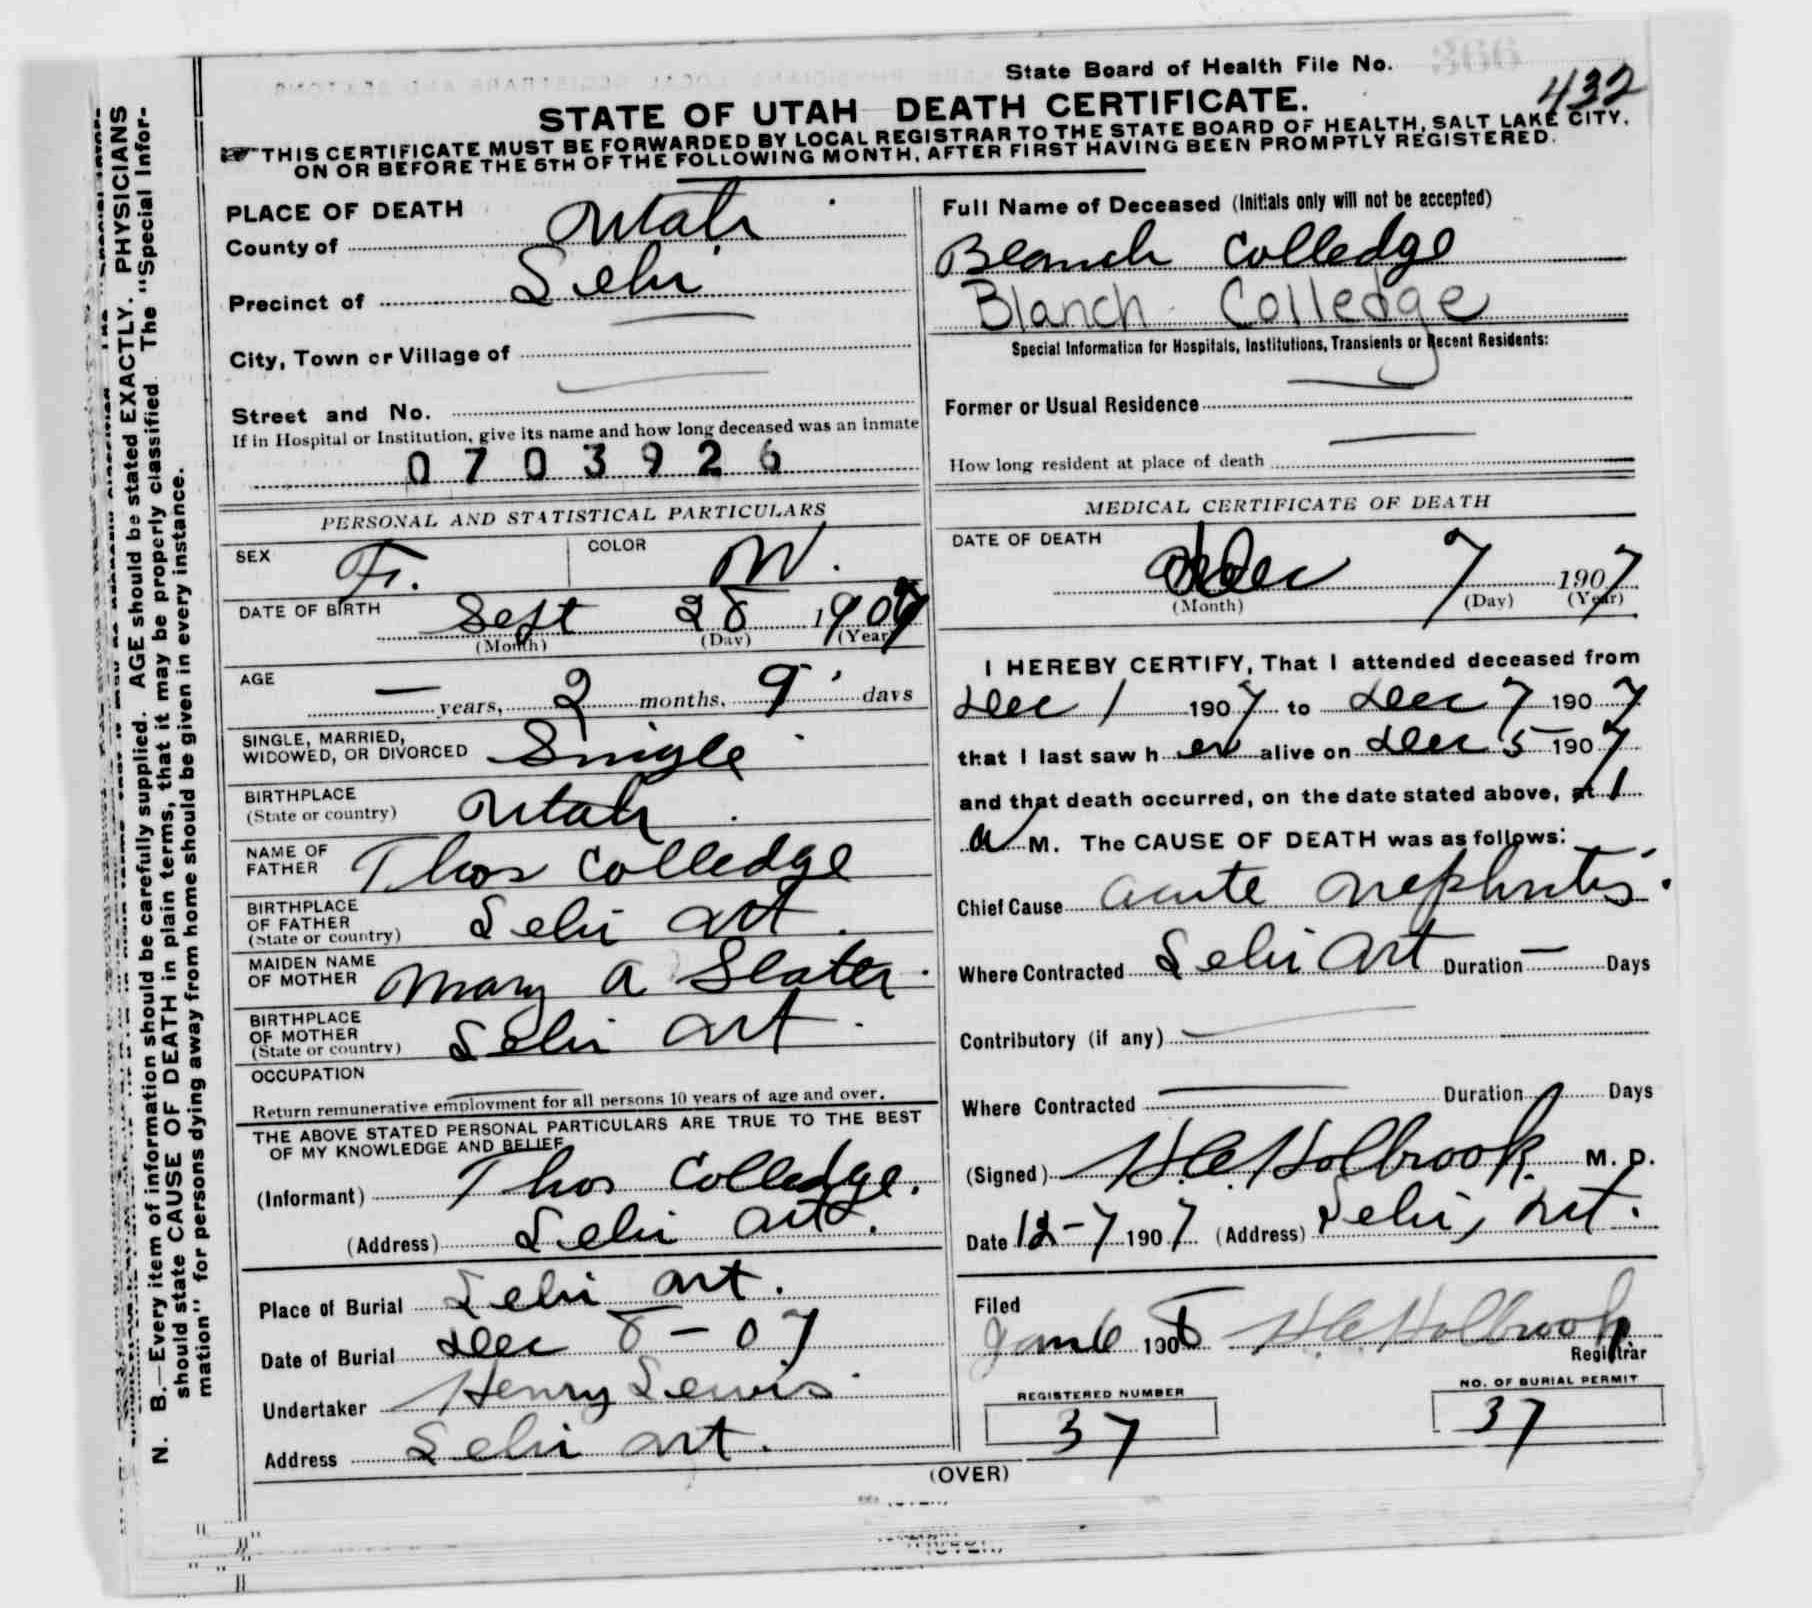 State Board of Health File No.
432
STATE OF UTAH DEATH CERTIFICATE.
THIS CERTIFICATE MUST BE FORWARDED BY LOCAL REGISTRAR TO THE STATE BOARD OF HEALTH, SALT LAKE CITY,
ON OR BEFORE THE 5TH OF THE FOLLOWING MONTH, AFTER FIRST HAVING BEEN PROMPTLY REGISTERED.
PLACE OF DEATH
County of Utah
Precinct of Lehi
City, Town or Village of
Street and No.
If in Hospital or Institution, give its name and how long deceased was an inmate
0703926
PERSONAL AND STATISTICAL PARTICULARS
SEX F. COLOR W.
DATE OF BIRTH Sept 28 1907
(Month) (Day) (Year)
AGE — years, 2 months, 9 days
SINGLE, MARRIED,
WIDOWED, OR DIVORCED Single
BIRTHPLACE
(State or country) Utah
NAME OF
FATHER Thos Colledge
BIRTHPLACE
OF FATHER
(State or country) Lehi Ut.
MAIDEN NAME
OF MOTHER Mary A Slater.
BIRTHPLACE
OF MOTHER
(State or country) Lehi Ut.
OCCUPATION
Return remunerative employment for all persons 10 years of age and over.
THE ABOVE STATED PERSONAL PARTICULARS ARE TRUE TO THE BEST
OF MY KNOWLEDGE AND BELIEF
(Informant) Thos Colledge.
(Address) Lehi Ut.
Place of Burial Lehi Ut.
Date of Burial Dec 8 - 07
Undertaker Henry Lewis
Address Lehi Ut.
Full Name of Deceased (Initials only will not be accepted)
Blanch Colledge
Blanch Colledge
Special Information for Hospitals, Institutions, Transients or Recent Residents:
Former or Usual Residence
How long resident at place of death
MEDICAL CERTIFICATE OF DEATH
DATE OF DEATH
Dec 7 1907
(Month) (Day) (Year)
I HEREBY CERTIFY, That I attended deceased from
Dec 1 1907 to Dec 7 1907
that I last saw h er alive on Dec 5 1907
and that death occurred, on the date stated above, at 1
a M. The CAUSE OF DEATH was as follows:
Chief Cause acute Nephritis.
Where Contracted Lehi Ut Duration — Days
Contributory (if any)
Where Contracted Duration Days
(Signed) H.C. Holbrook M. D.
Date 12-7 1907 (Address) Lehi, Ut.
Filed
Jan 6 1908 H.C. Holbrook
Registrar
REGISTERED NUMBER
37
NO. OF BURIAL PERMIT
37
(OVER)
N. B.—Every item of information should be carefully supplied. AGE should be stated EXACTLY. PHYSICIANS
should state CAUSE OF DEATH in plain terms, that it may be properly classified. The "Special Infor-
mation" for persons dying away from home should be given in every instance.